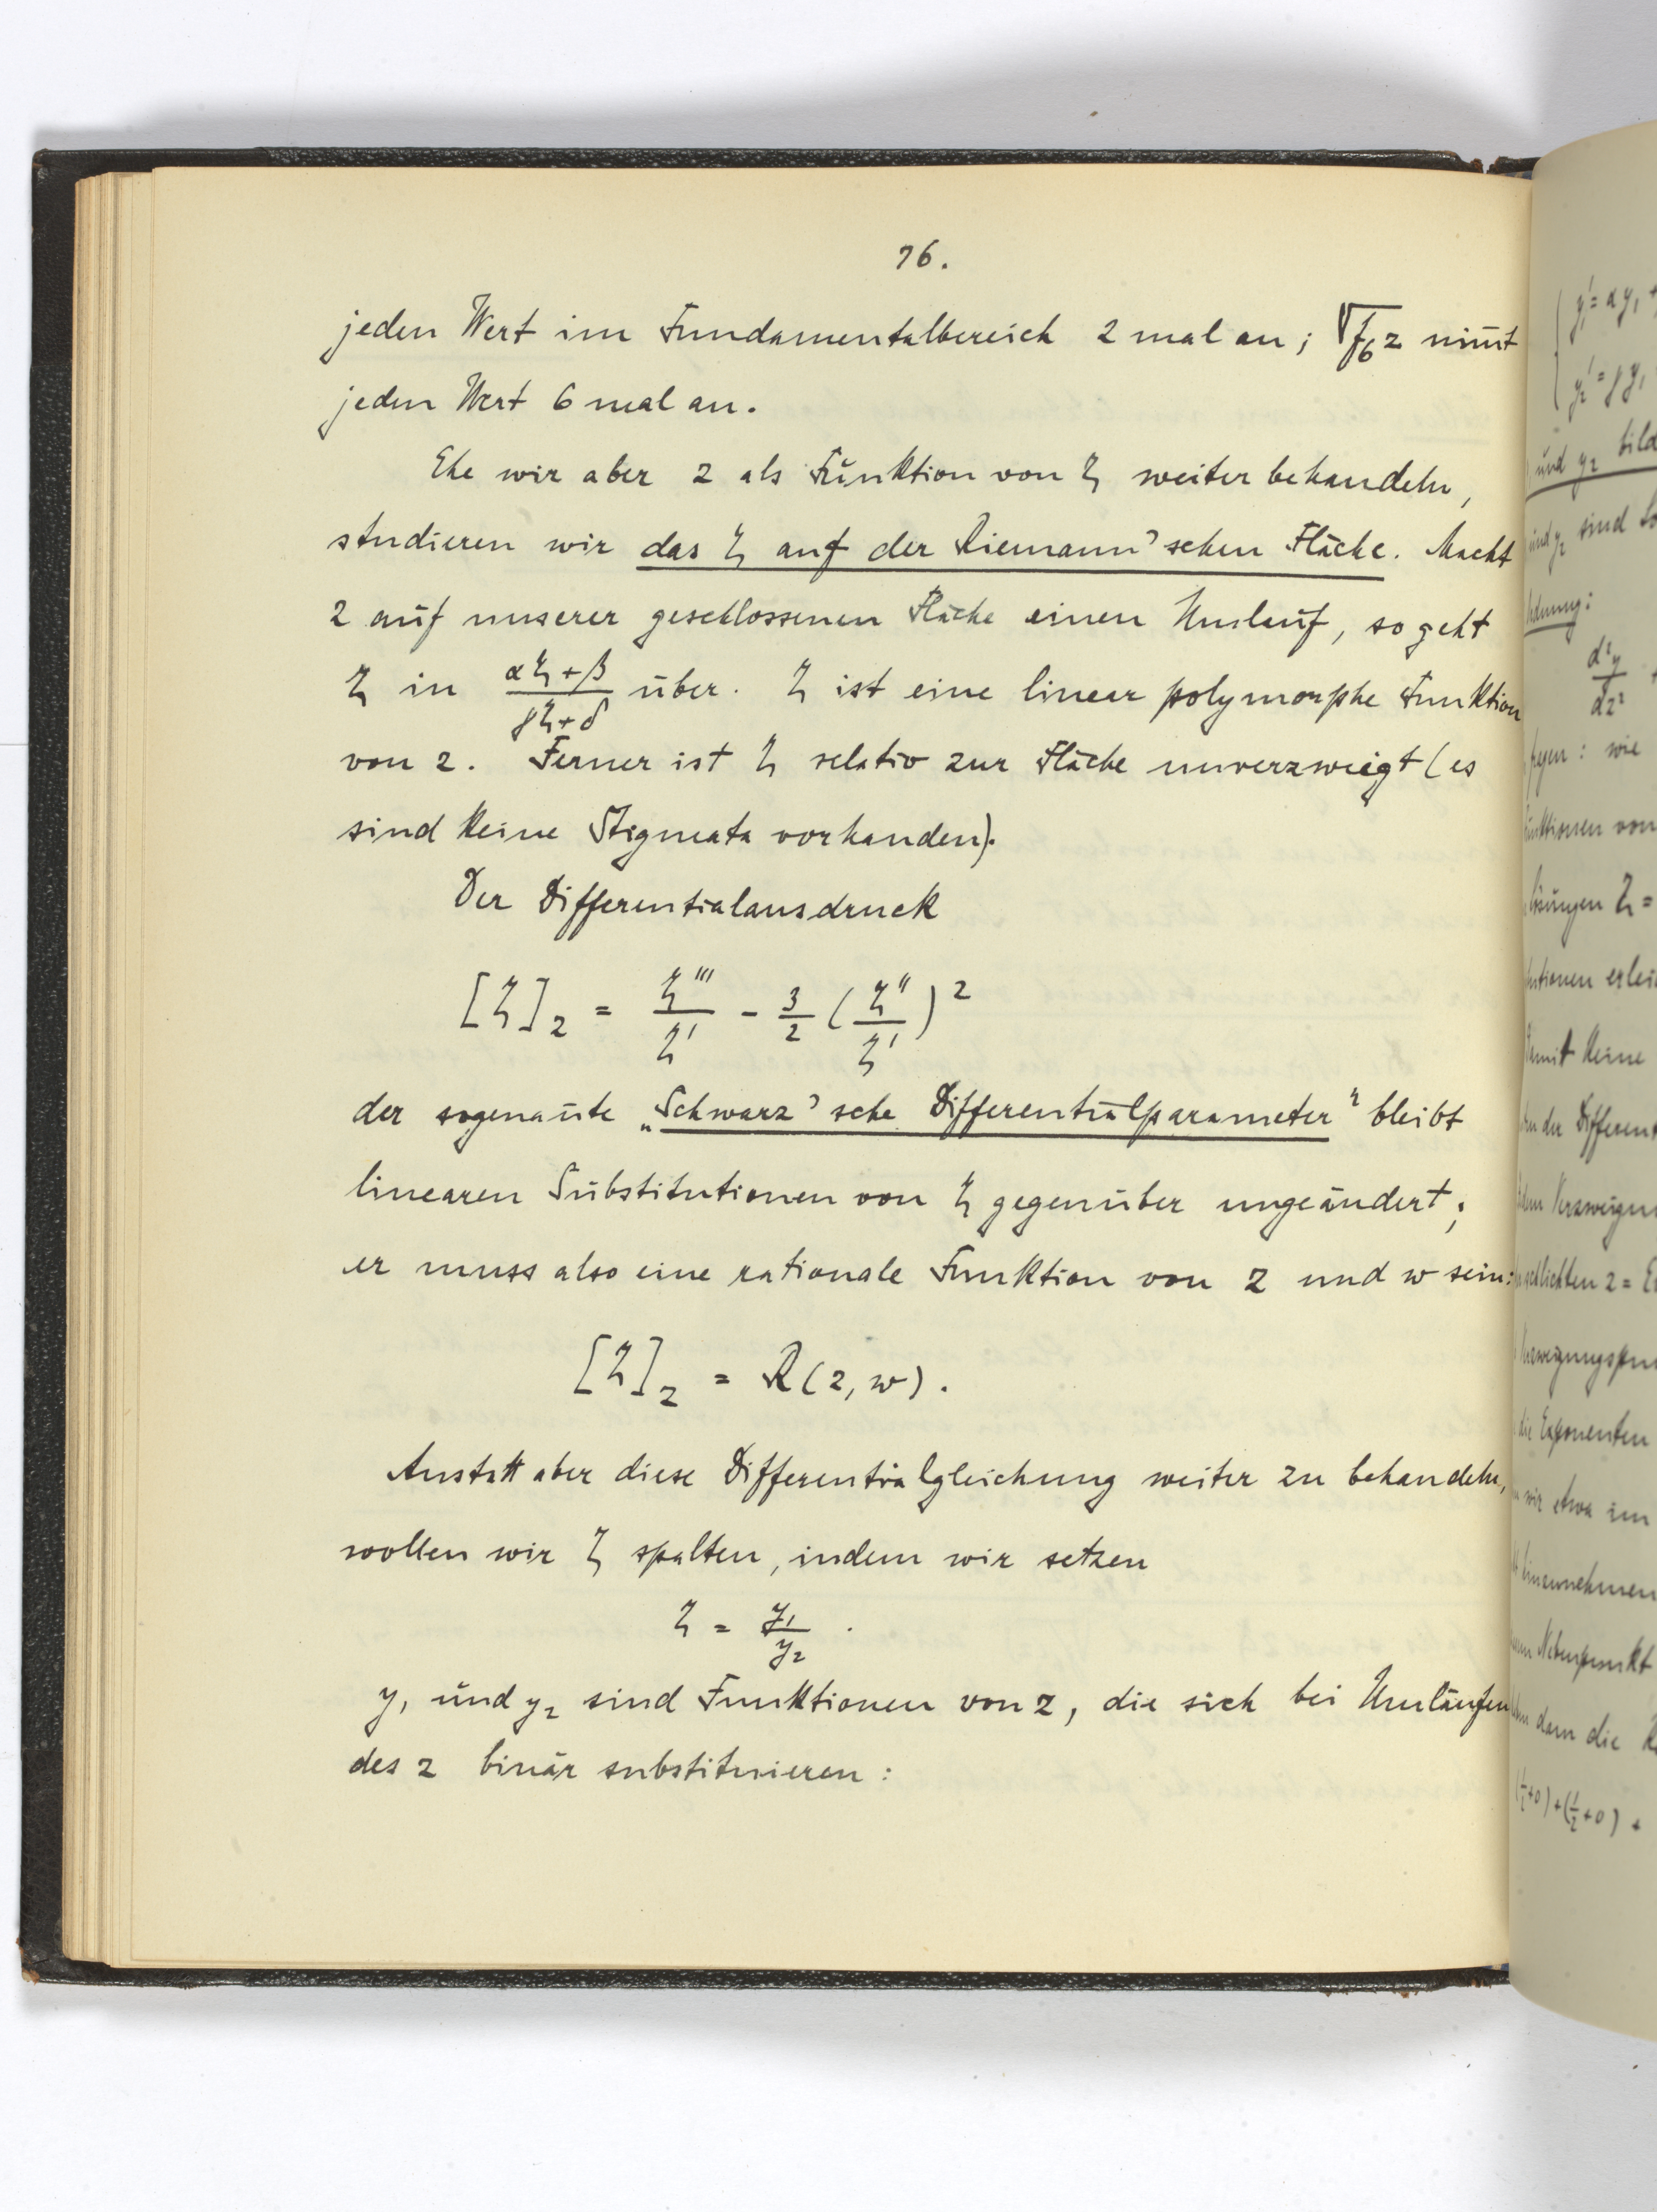 76.
jeden Wert im Fundamentalbereich 2 mal an; √f₆z nim̅t
jeden Wert 6 mal an.
Ehe wir aber z als Funktion von ζ weiter behandeln,
studieren wir das ζ auf der Riemann'schen Fläche. Macht
z auf unserer geschlossenen Fläche einen Umlauf, so geht
ζ in (αζ+β)/(γζ+δ) über. ζ ist eine linear polymorphe Funktion
von z. Ferner ist ζ relativ zur Fläche unverzweigt (es
sind keine Stigmata vorhanden).
Der Differentialausdruck
[ζ]₂ = ζ'''/ζ' - 3/2 (ζ''/ζ')²
der sogenan̅te „Schwarz'sche Differentialparameter" bleibt
linearen Substitutionen von ζ gegenüber ungeändert;
er muss also eine rationale Funktion von z und w sein:
[ζ]₂ = R(z, w).
Anstatt aber diese Differentialgleichung weiter zu behandeln,
wollen wir ζ spalten, indem wir setzen
ζ = y₁/y₂ .
y₁ und y₂ sind Funktionen von z, die sich bei Umläufen
des z binär substituieren:
y₁' = αy₁ +
y₂' = γy₁
und y₂ bild
sind
d²y/dz²
: wie
von
ζ =
keine
der Differen
z =
die Exponenten
wir etwa im
Nebenpunkt
dann die
(½+0)+(½+0) +